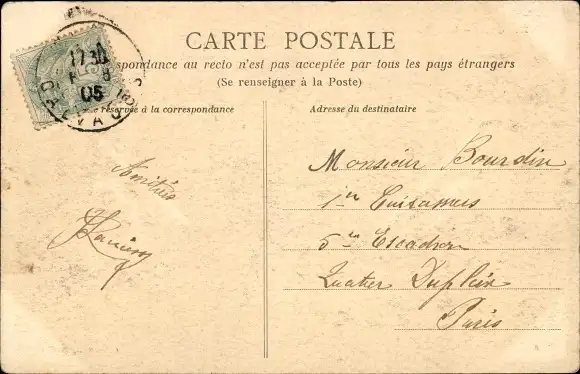 CARTE POSTALE
pondance au recto n'est pas acceptée par tous les pays étrangers
(Se renseigner à la Poste)
réservée à la correspondance
Adresse du destinataire
17 30
05
Amitiés
Monsieur Bourdin
1er Cuirassiers
5me Escadron
Quartier Dupleix
Paris